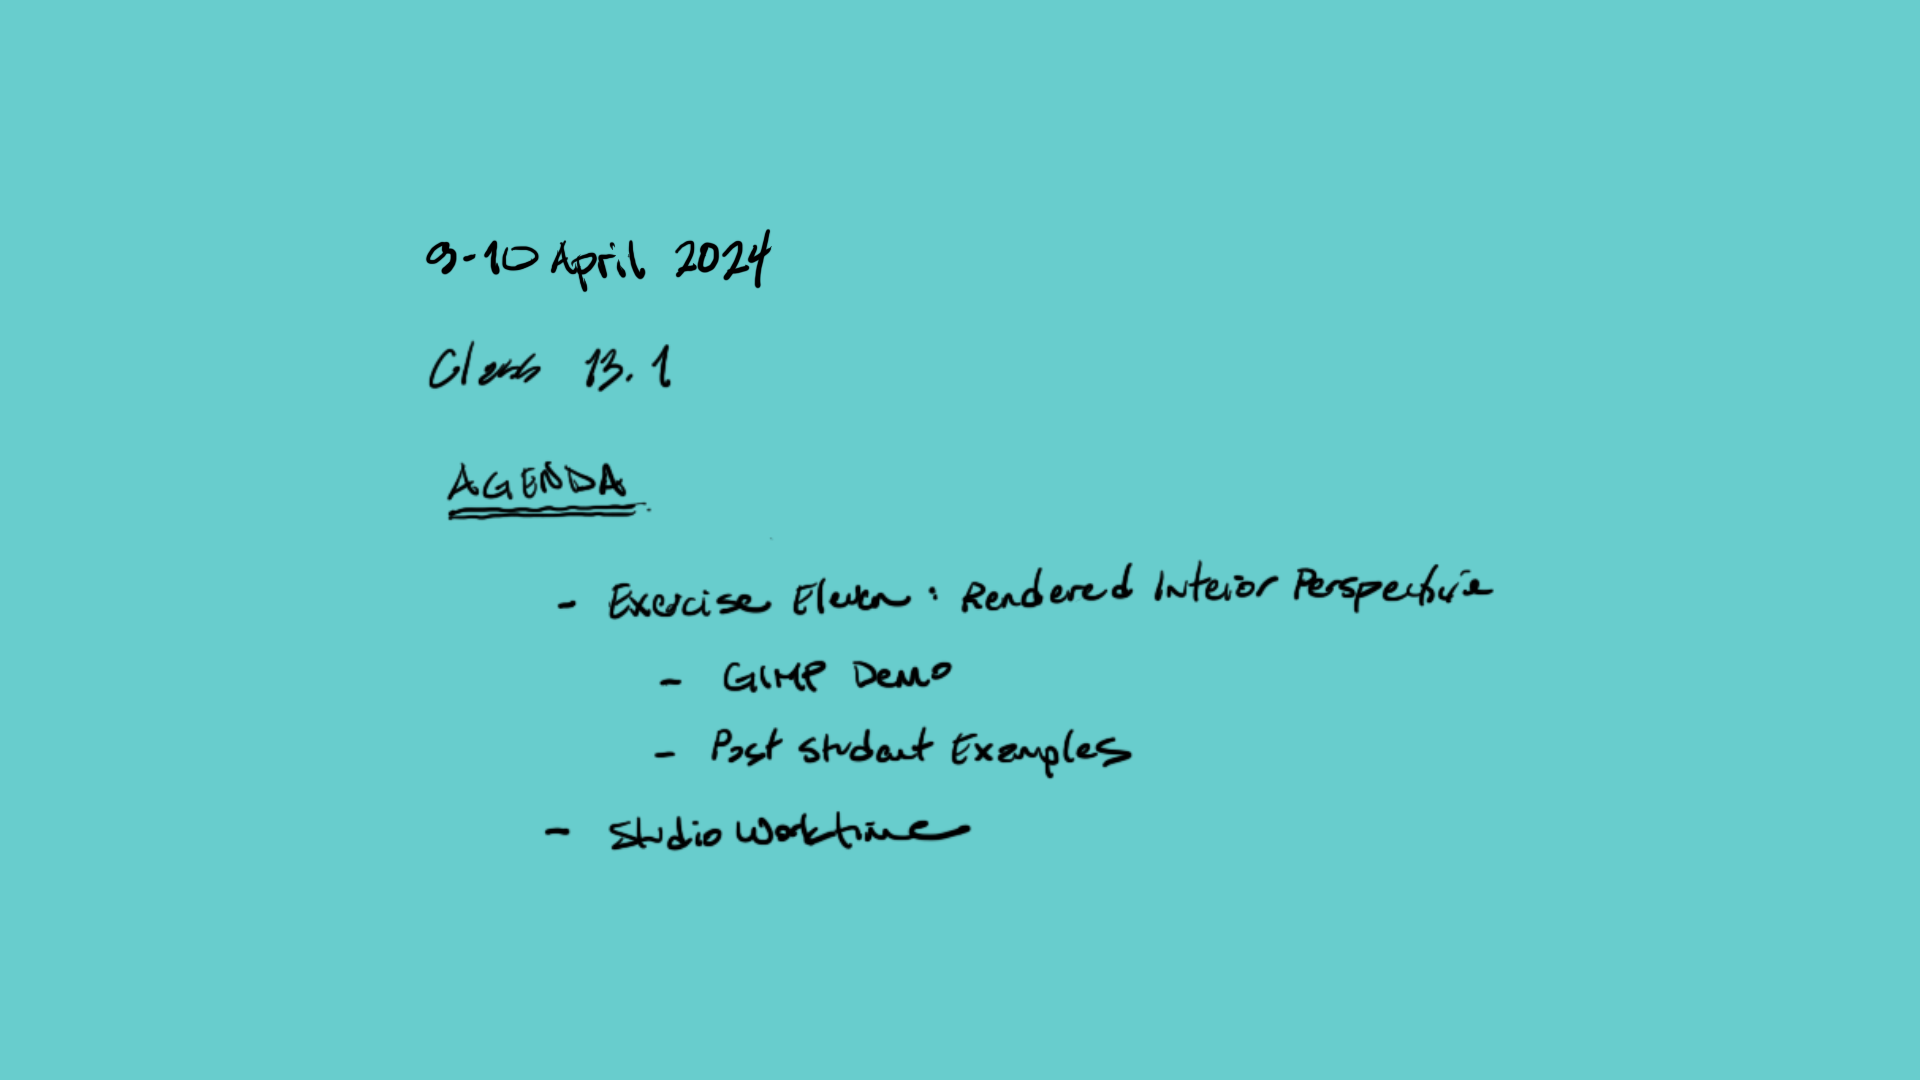 9-10 April 2024
Class 13.1
AGENDA
- Exercise Eleven: Rendered Interior Perspective
- GIMP Demo
- Past Student Examples
- Studio Worktime